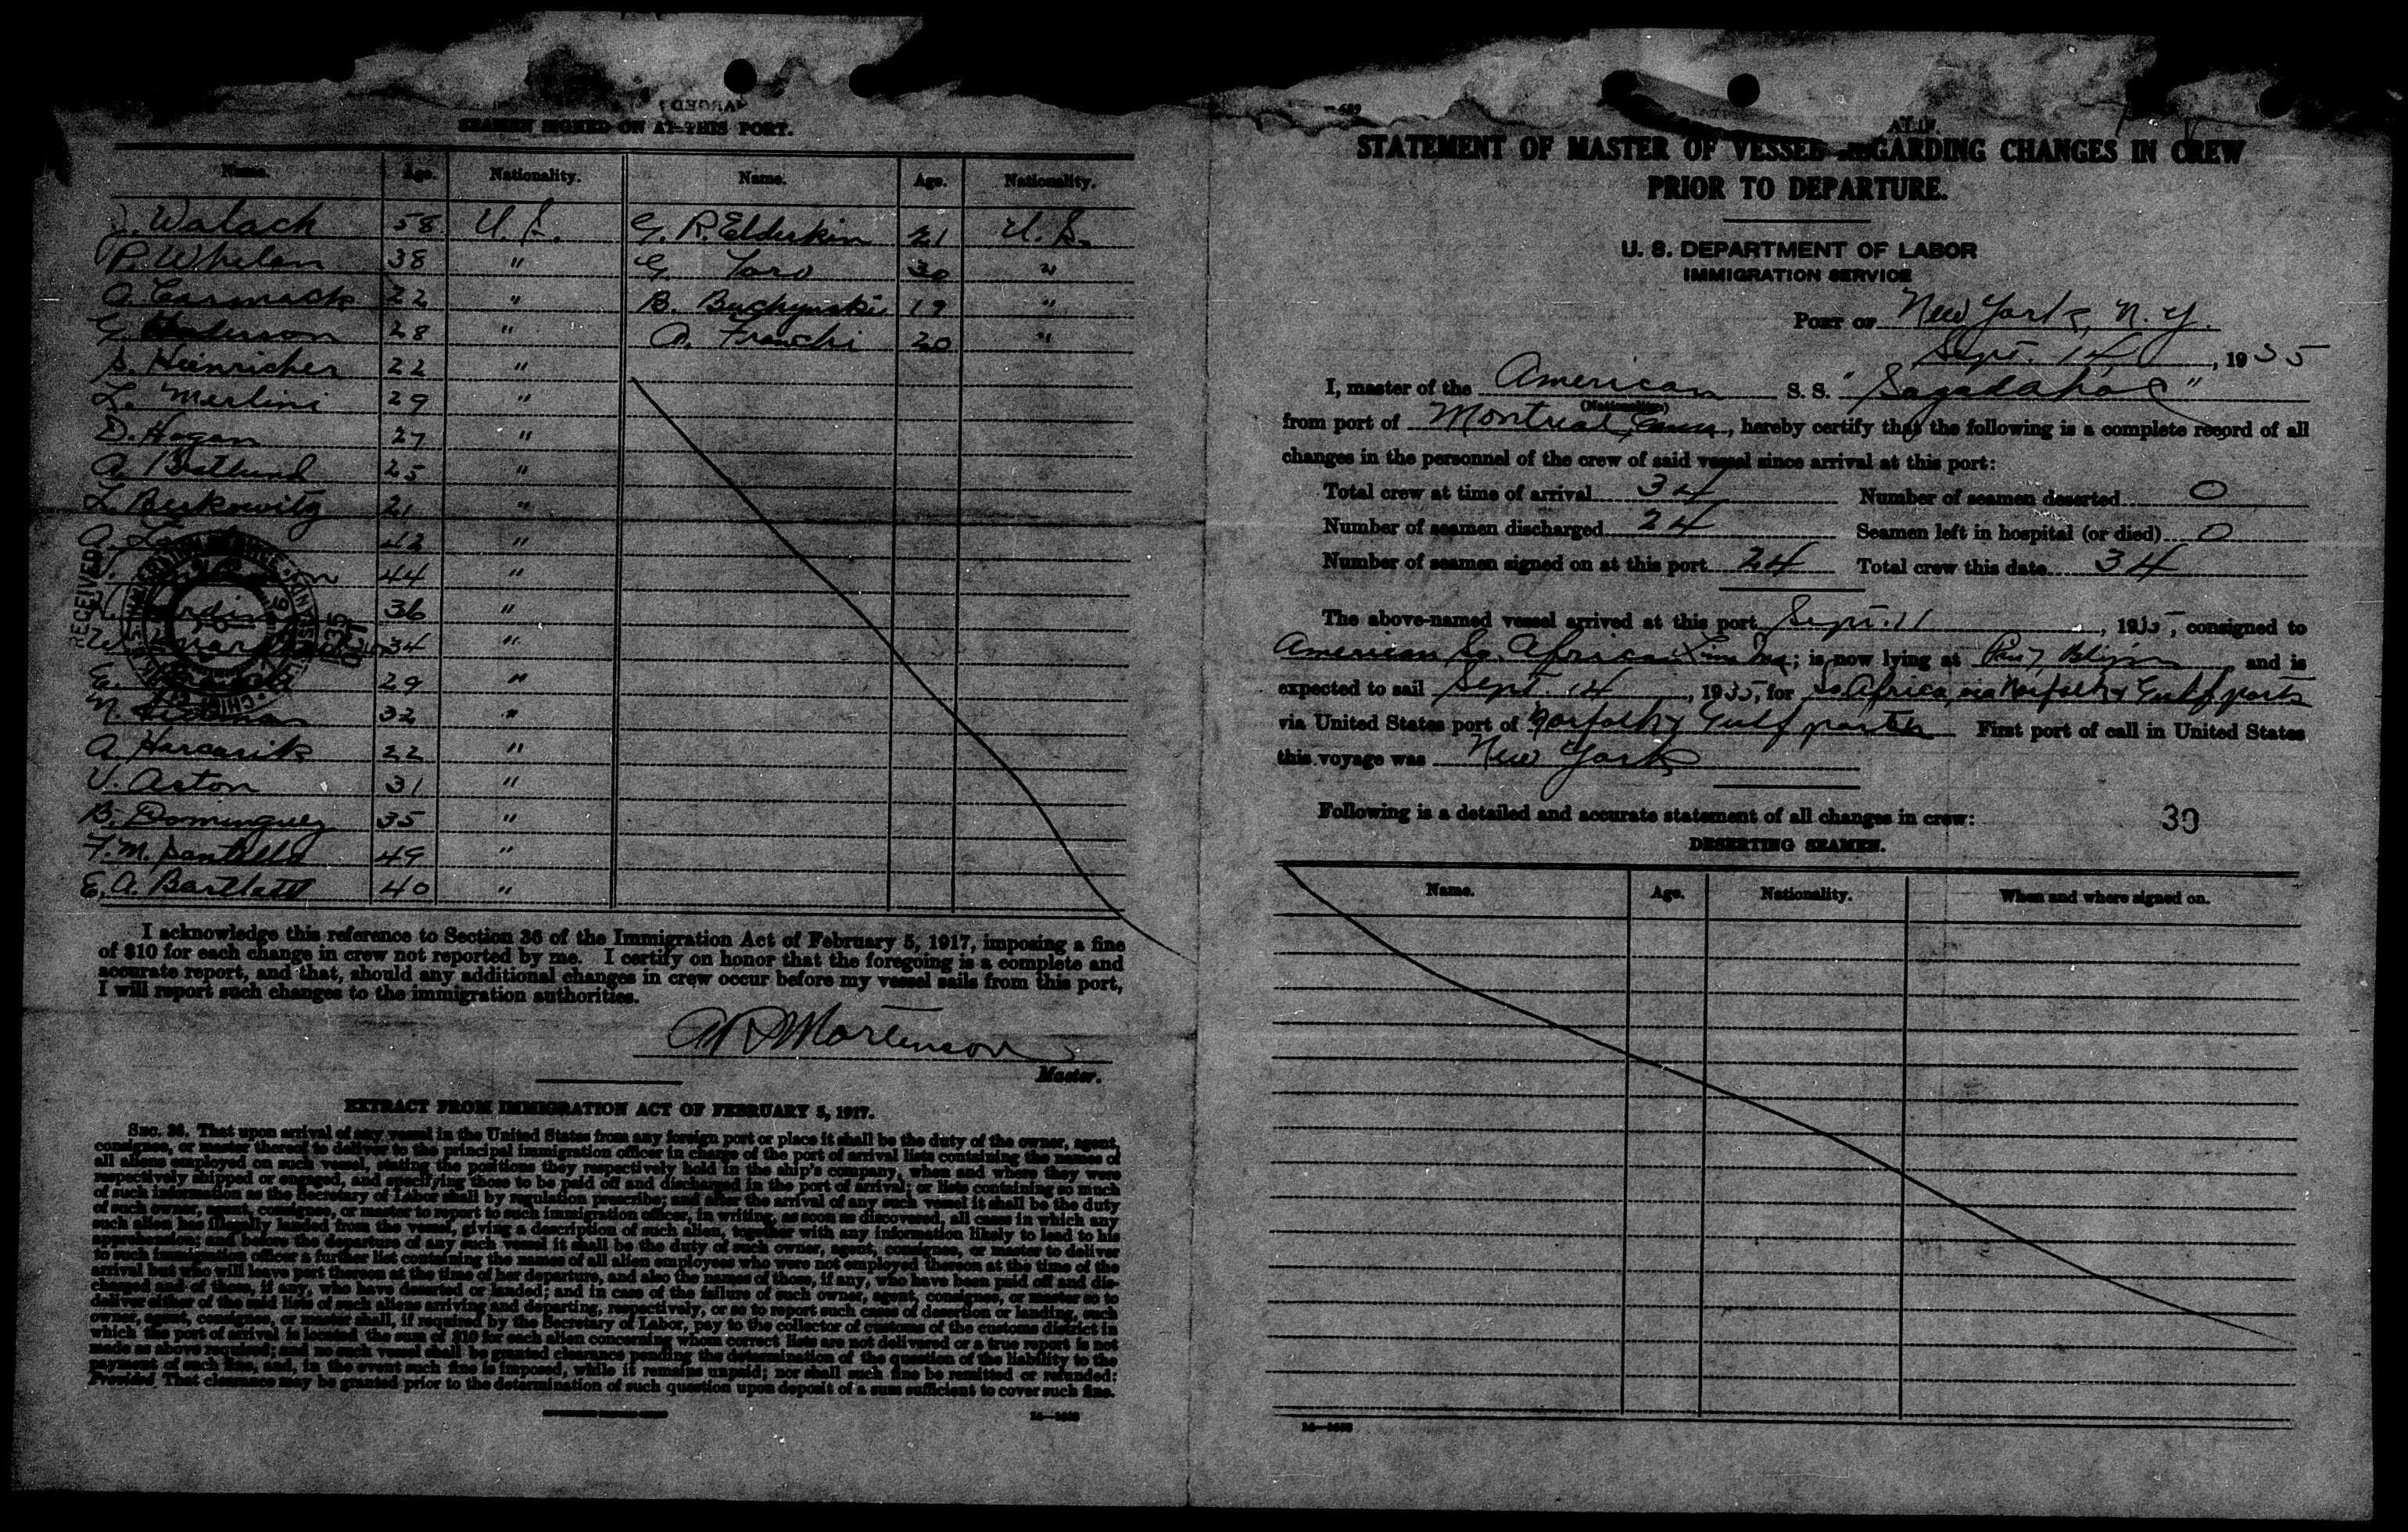 SEAMEN SIGNED ON AT THIS PORT.
Name. Age. Nationality. Name. Age. Nationality.
Walach 58 U.S. G. R. Elderkin 21 U.S.
P. Whelan 38 " G. Toro 30 "
A. Carmack 22 " B. Buchynski 19 "
G. Anderson 28 " A. Franchi 20 "
S. Heinricher 22 "
L. Merlini 29 "
D. Hogan 27 "
A. 25 "
L. Berkowitz 21 "
A. 42 "
44 "
36 "
34 "
E. 29 "
N. 32 "
A. Harcarik 22 "
V. Aston 31 "
B. Dominguez 35 "
F. M. 49 "
E. A. Bartlett 40 "
RECEIVED
I acknowledge this reference to Section 36 of the Immigration Act of February 5, 1917, imposing a fine
of $10 for each change in crew not reported by me. I certify on honor that the foregoing is a complete and
accurate report, and that, should any additional changes in crew occur before my vessel sails from this port,
I will report such changes to the immigration authorities.
Mortenson
Master.
EXTRACT FROM IMMIGRATION ACT OF FEBRUARY 5, 1917.
SEC. 36. That upon arrival of any vessel in the United States from any foreign port or place it shall be the duty of the owner, agent,
consignee, or master thereof to deliver to the principal immigration officer in charge of the port of arrival lists containing the names of
all aliens employed on such vessel, stating the positions they respectively hold in the ship's company, when and where they were
respectively shipped or engaged, and specifying those to be paid off and discharged in the port of arrival; or lists containing so much
of such information as the Secretary of Labor shall by regulation prescribe; and after the arrival of any such vessel it shall be the duty
of such owner, agent, consignee, or master to report to such immigration officer, in writing, as soon as discovered, all cases in which any
such alien has illegally landed from the vessel, giving a description of such alien, together with any information likely to lead to his
apprehension; and before the departure of any such vessel it shall be the duty of such owner, agent, consignee, or master to deliver
to such immigration officer a further list containing the names of all alien employees who were not employed thereon at the time of the
arrival but who will leave port thereon at the time of her departure, and also the names of those, if any, who have been paid off and dis-
charged and of those, if any, who have deserted or landed; and in case of the failure of such owner, agent, consignee, or master so to
deliver either of the said lists of such aliens arriving and departing, respectively, or so to report such cases of desertion or landing, such
owner, agent, consignee, or master shall, if required by the Secretary of Labor, pay to the collector of customs of the customs district in
which the port of arrival is located the sum of $10 for each alien concerning whom correct lists are not delivered or a true report is not
made as above required; and no such vessel shall be granted clearance pending the determination of the question of the liability to the
payment of such fine, and, in the event such fine is imposed, while it remains unpaid; nor shall such fine be remitted or refunded:
Provided, That clearance may be granted prior to the determination of such question upon deposit of a sum sufficient to cover such fine.
STATEMENT OF MASTER OF VESSEL REGARDING CHANGES IN CREW
PRIOR TO DEPARTURE.
U. S. DEPARTMENT OF LABOR
IMMIGRATION SERVICE
PORT OF New York, N. Y.
Sept. 14, 1935
I, master of the American S. S. "Sagadahoc"
(Nationality)
from port of Montreal, hereby certify that the following is a complete record of all
changes in the personnel of the crew of said vessel since arrival at this port:
Total crew at time of arrival 34 Number of seamen deserted 0
Number of seamen discharged 24 Seamen left in hospital (or died) 0
Number of seamen signed on at this port 24 Total crew this date 34
The above-named vessel arrived at this port Sept. 11, 1935, consigned to
American So. African Line Inc; is now lying at and is
expected to sail Sept. 14, 1935, for So. Africa, via Norfolk & Gulf ports
via United States port of Norfolk & Gulf ports First port of call in United States
this voyage was New York
Following is a detailed and accurate statement of all changes in crew: 30
DESERTING SEAMEN.
Name. Age. Nationality. When and where signed on.